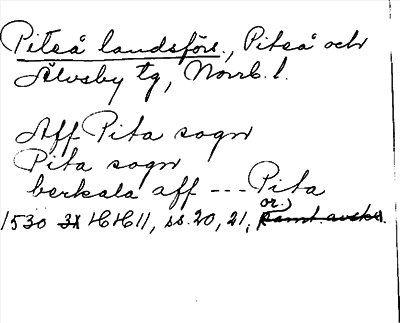 Piteå landsförs., Piteå och
Älvsby tg, Norrb. l.
Aff Pita sogn
Pita sogn
berkala aff --- Pita
1530 3x HH 11, ss. 20, 21, or.)